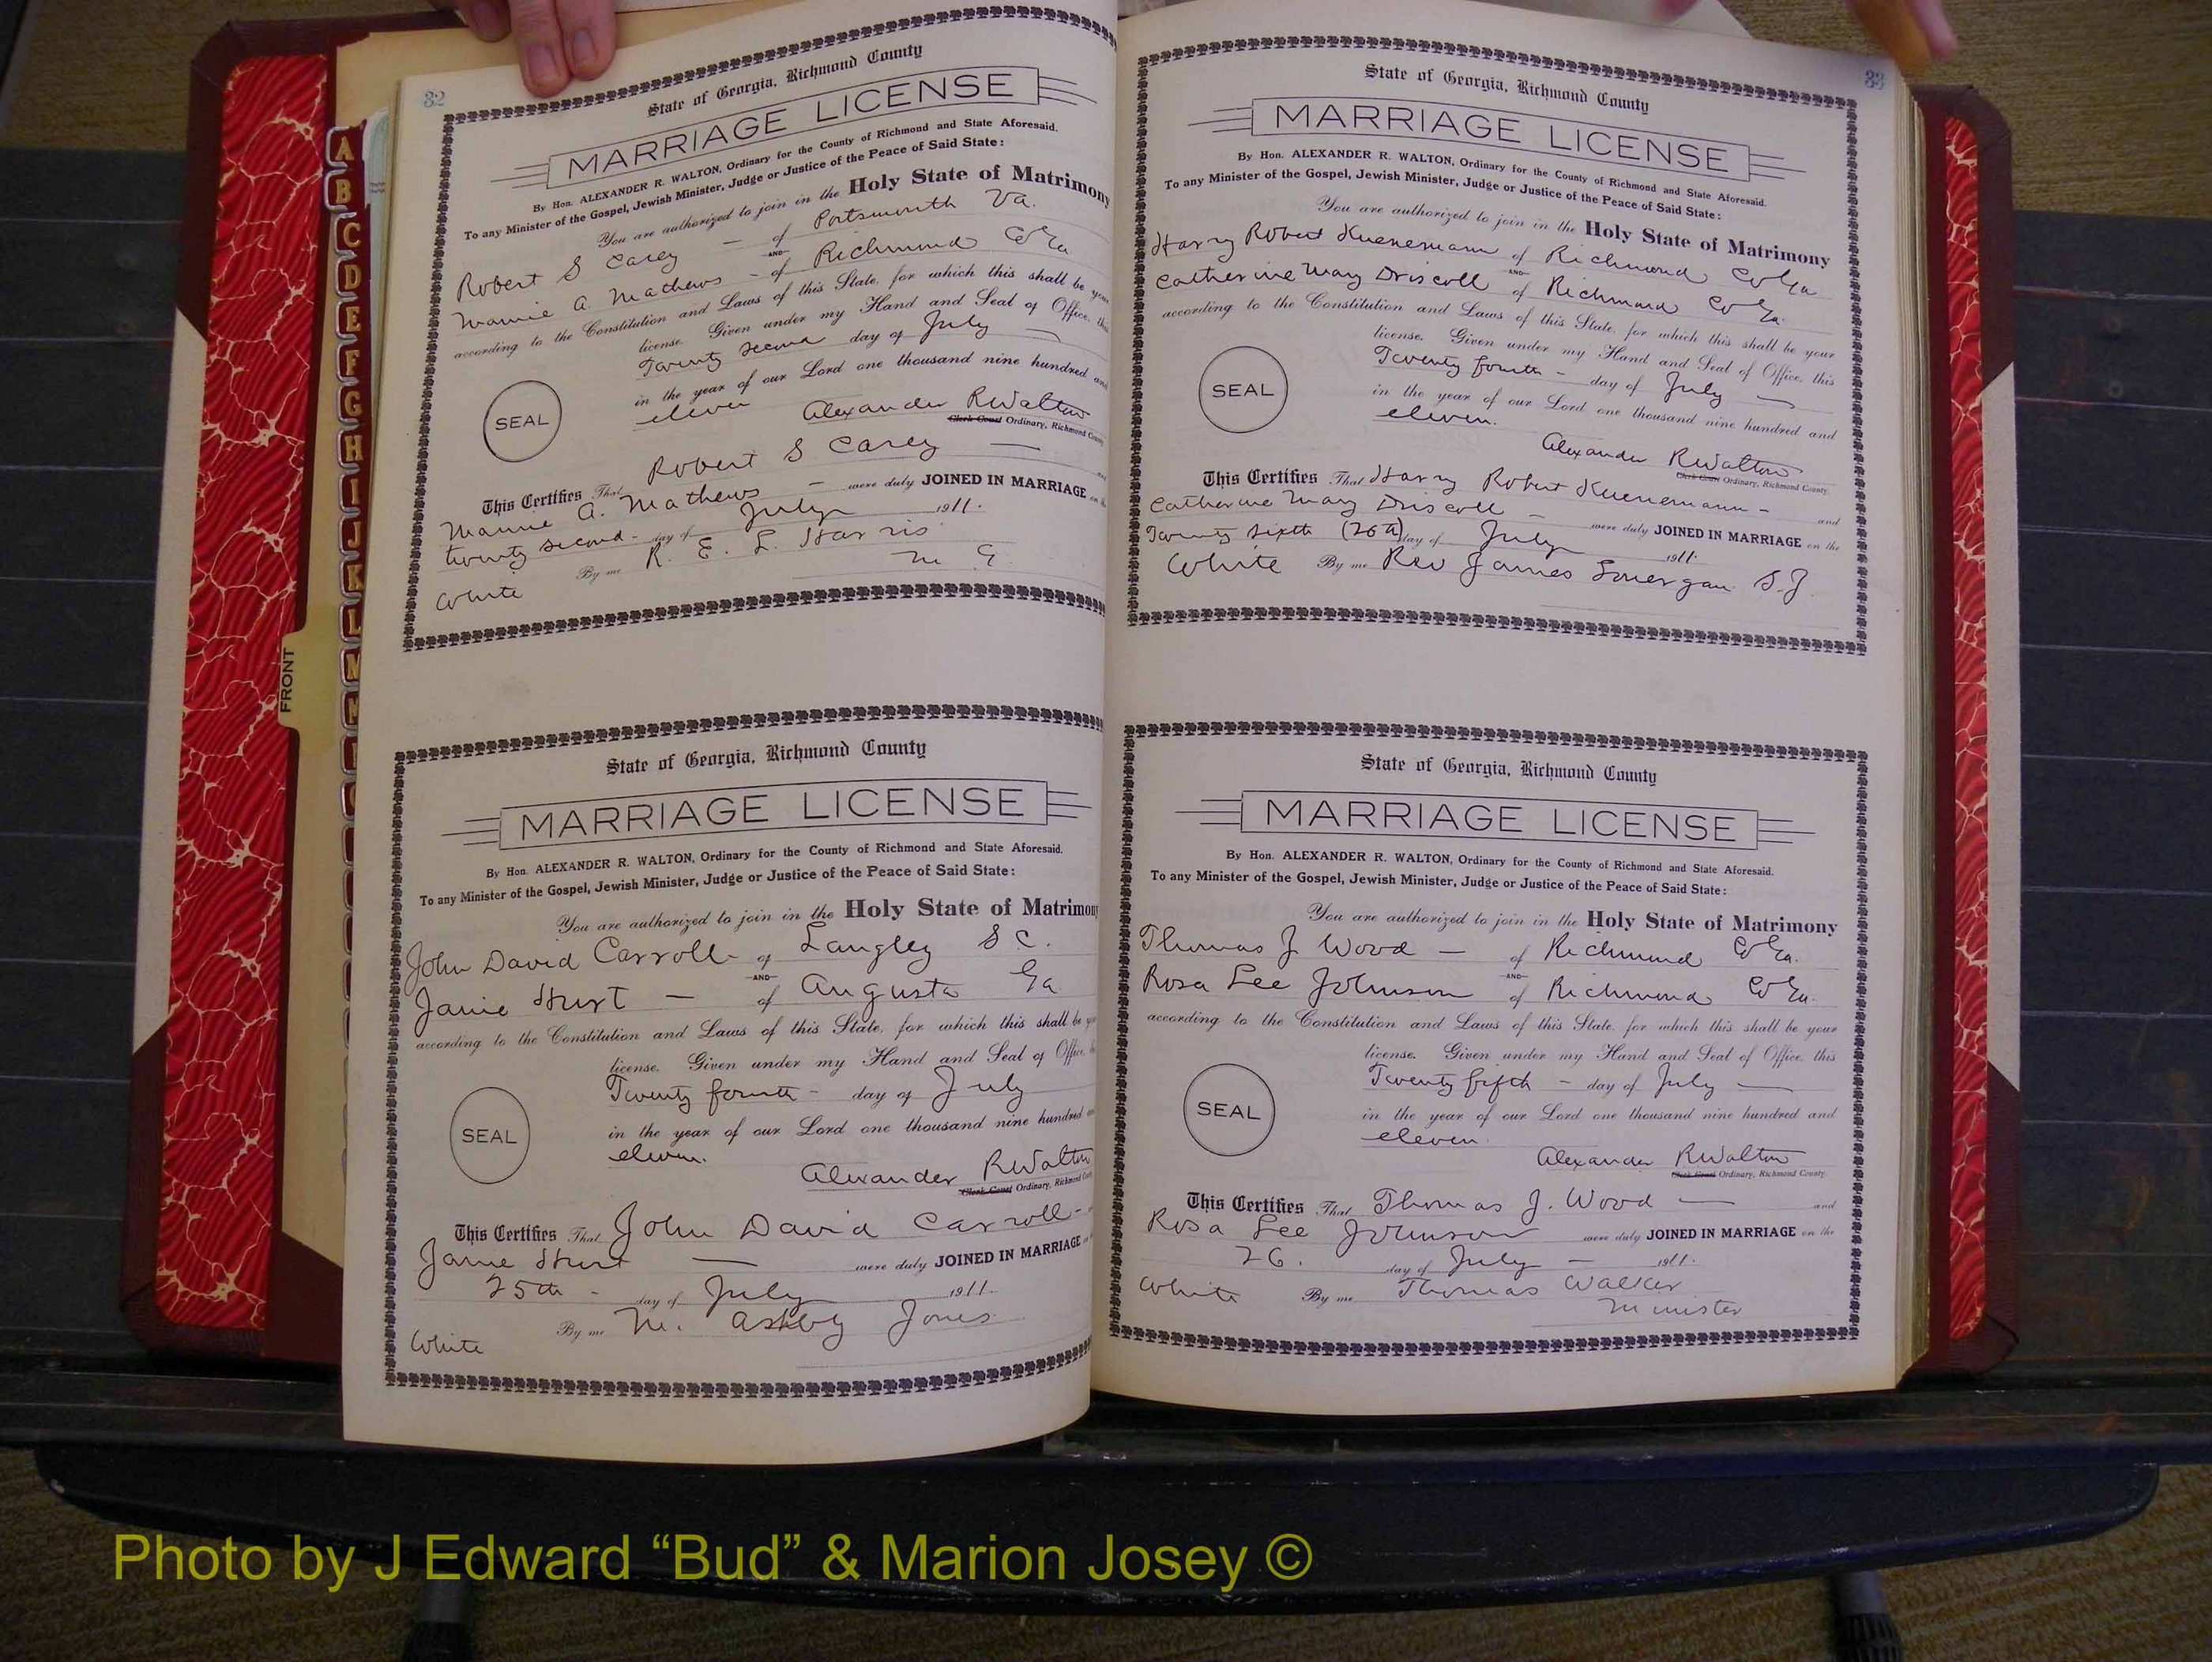 32
State of Georgia, Richmond County
MARRIAGE LICENSE
By Hon. ALEXANDER R. WALTON, Ordinary for the County of Richmond and State Aforesaid.
To any Minister of the Gospel, Jewish Minister, Judge or Justice of the Peace of Said State:
You are authorized to join in the Holy State of Matrimony
Robert S Carey — of Portsmouth Va.
AND
Mamie A. Mathews - of Richmond Co Ga
according to the Constitution and Laws of this State, for which this shall be your
license. Given under my Hand and Seal of Office, this
Twenty second day of July —
in the year of our Lord one thousand nine hundred and
eleven
SEAL
Alexander R Walton
Clerk Court Ordinary, Richmond County
This Certifies That Robert S Carey — and
Mamie A. Mathews — were duly JOINED IN MARRIAGE on the
twenty second - day of July 1911.
By me R. E. L. Harris
M G
White
State of Georgia, Richmond County
MARRIAGE LICENSE
By Hon. ALEXANDER R. WALTON, Ordinary for the County of Richmond and State Aforesaid.
To any Minister of the Gospel, Jewish Minister, Judge or Justice of the Peace of Said State:
You are authorized to join in the Holy State of Matrimony
John David Carroll - of Langley S C.
AND
Janie Hurt — of Augusta Ga
according to the Constitution and Laws of this State, for which this shall be
license. Given under my Hand and Seal of Office,
Twenty fourth - day of July
in the year of our Lord one thousand nine hundred
eleven.
SEAL
Alexander R Walton
Clerk Court Ordinary, Richmond
This Certifies That John David Carroll -
Janie Hurt — were duly JOINED IN MARRIAGE
25th - day of July 1911.
By me M. Ashby Jones
White
33
State of Georgia, Richmond County
MARRIAGE LICENSE
By Hon. ALEXANDER R. WALTON, Ordinary for the County of Richmond and State Aforesaid.
To any Minister of the Gospel, Jewish Minister, Judge or Justice of the Peace of Said State:
You are authorized to join in the Holy State of Matrimony
Harry Robert Kuenemann of Richmond Co Ga
AND
Catherine Mary Driscoll of Richmond Co Ga.
according to the Constitution and Laws of this State, for which this shall be your
license. Given under my Hand and Seal of Office, this
Twenty fourth - day of July —
in the year of our Lord one thousand nine hundred and
eleven.
SEAL
Alexander R Walton
Clerk Court Ordinary, Richmond County.
This Certifies That Harry Robert Kuenemann - and
Catherine Mary Driscoll — were duly JOINED IN MARRIAGE on the
Twenty sixth (26th) day of July 1911.
White By me Rev James Lonergan S.J.
State of Georgia, Richmond County
MARRIAGE LICENSE
By Hon. ALEXANDER R. WALTON, Ordinary for the County of Richmond and State Aforesaid.
To any Minister of the Gospel, Jewish Minister, Judge or Justice of the Peace of Said State:
You are authorized to join in the Holy State of Matrimony
Thomas J Wood — of Richmond Co Ga.
AND
Rosa Lee Johnson of Richmond Co Ga.
according to the Constitution and Laws of this State, for which this shall be your
license. Given under my Hand and Seal of Office, this
Twenty fifth - day of July —
in the year of our Lord one thousand nine hundred and
eleven.
SEAL
Alexander R Walton
Clerk Court Ordinary, Richmond County.
This Certifies That Thomas J. Wood — and
Rosa Lee Johnson were duly JOINED IN MARRIAGE on the
26. day of July — 1911.
White By me Thomas Walker
Minister
A
B
C
D
E
F
G
H
I
J
K
L
M
FRONT
Photo by J Edward “Bud” & Marion Josey ©